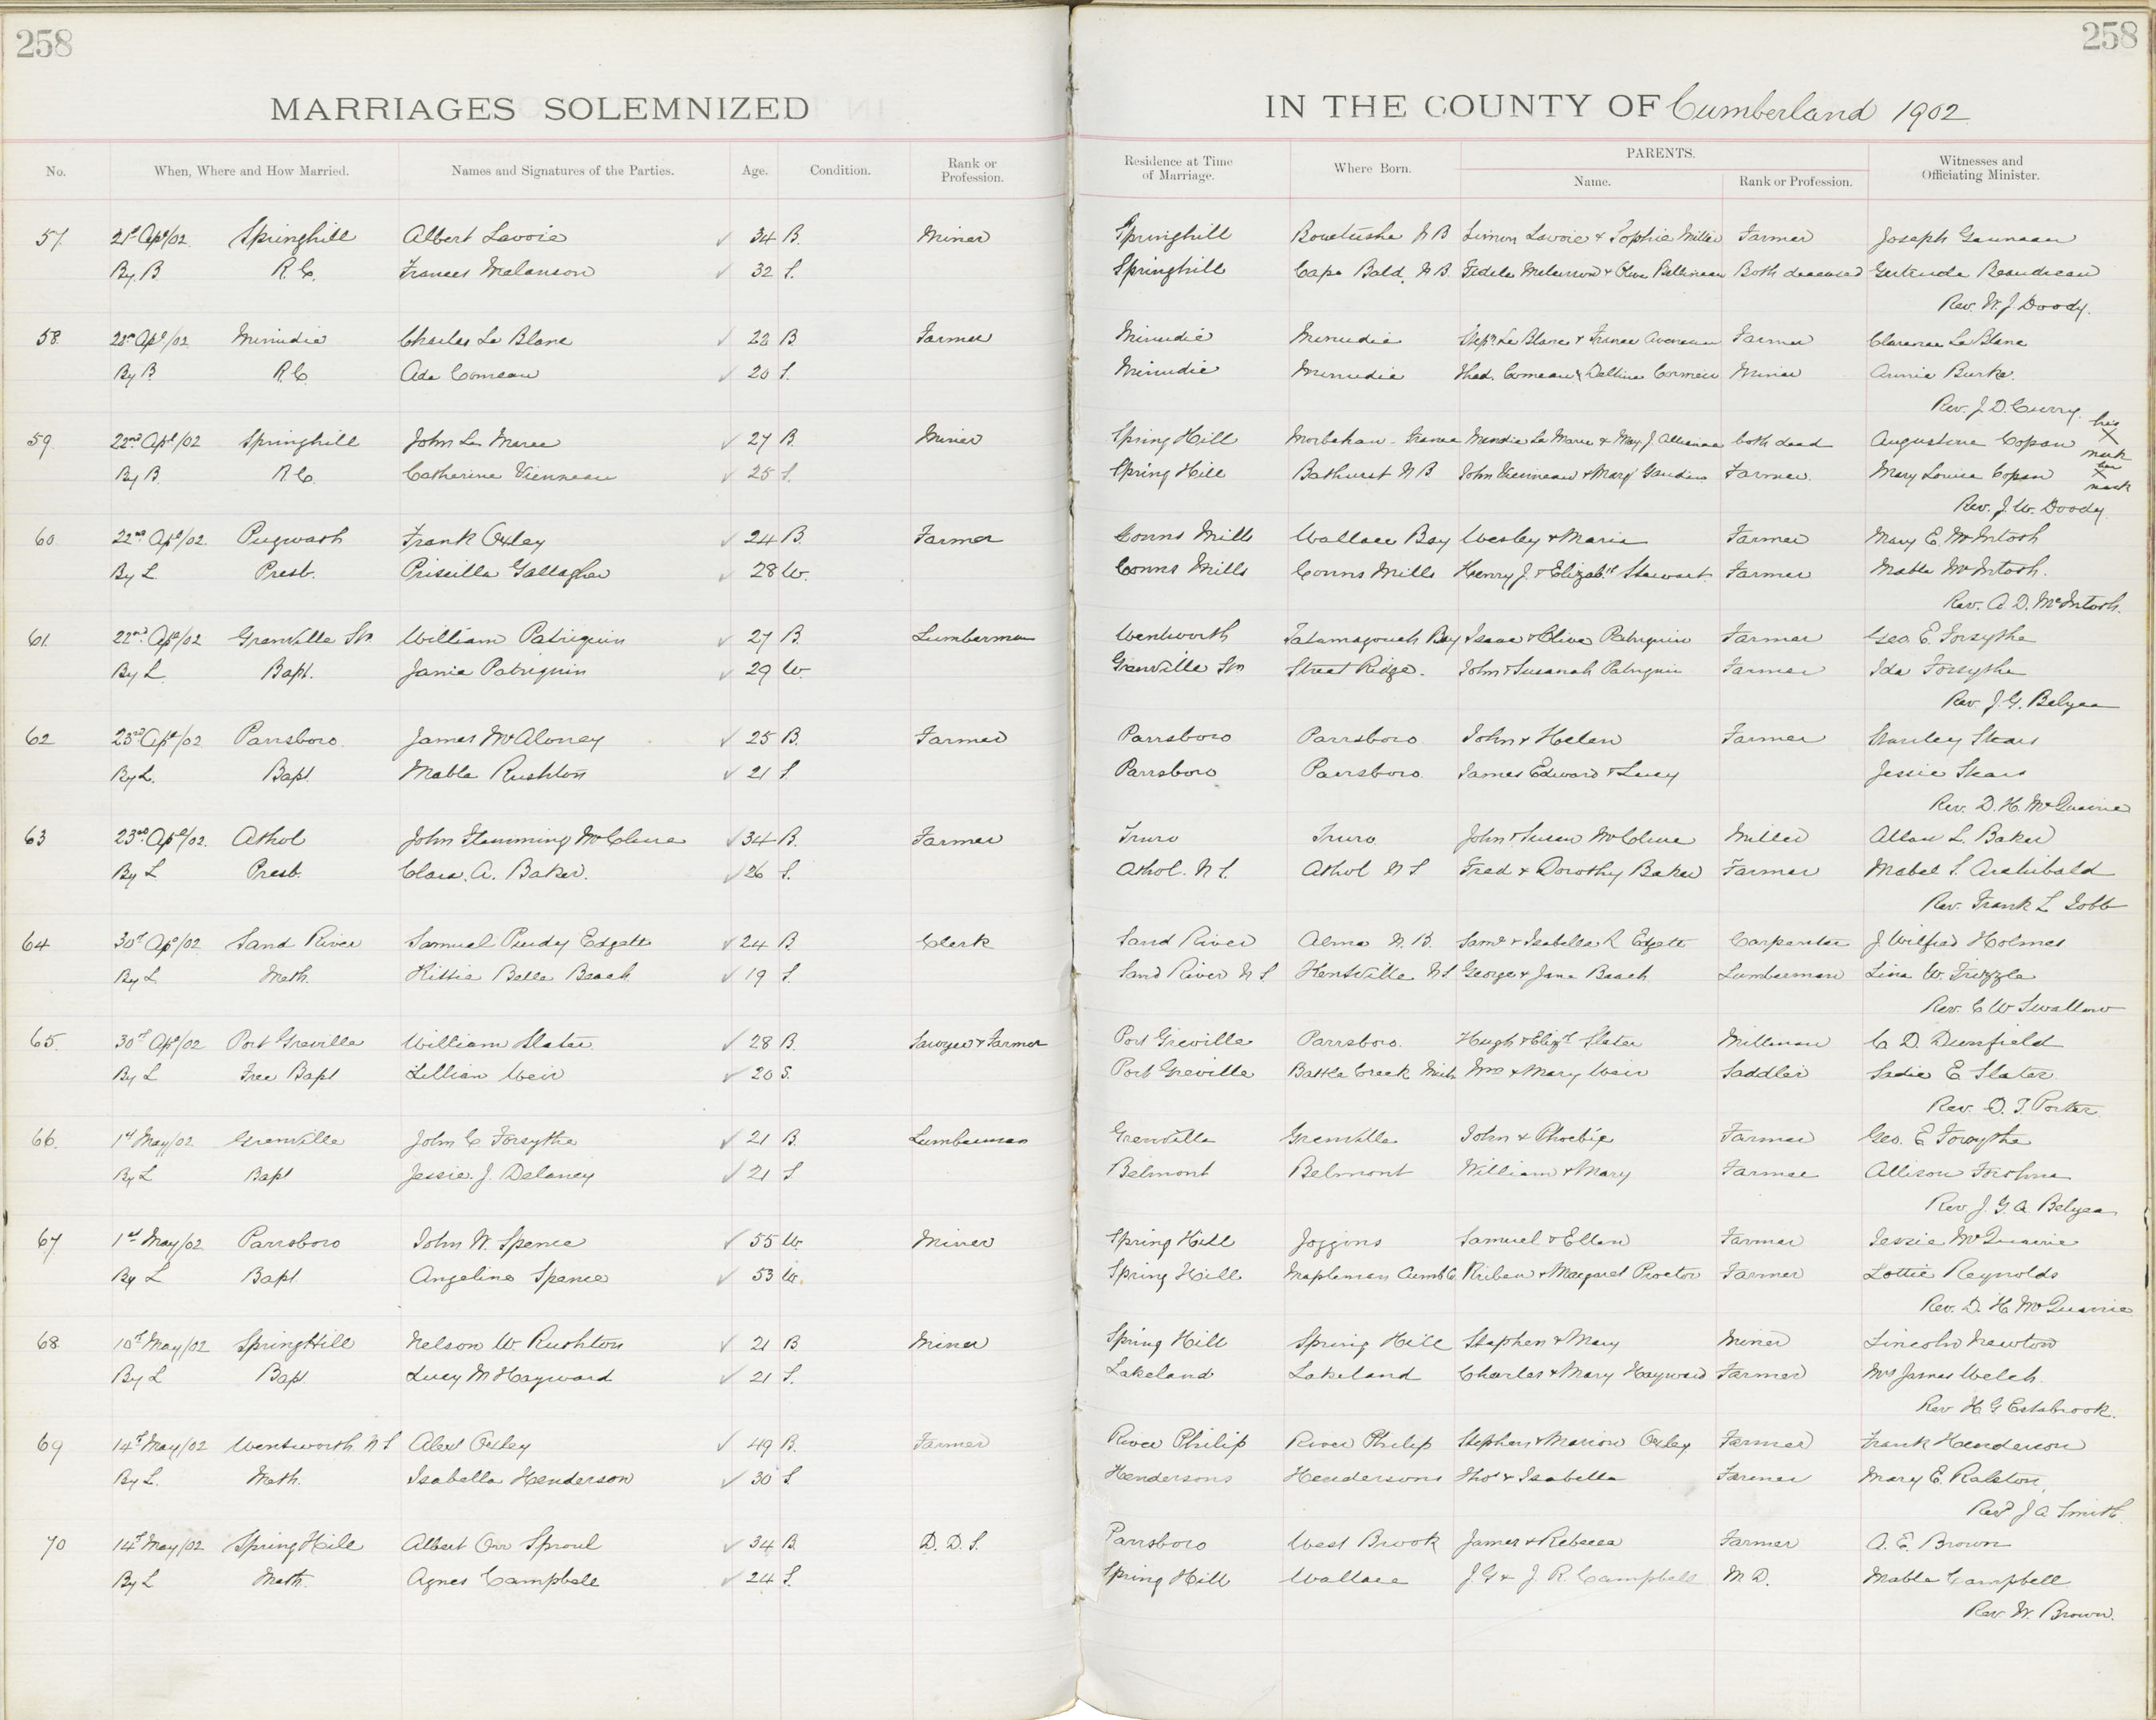 258 258
MARRIAGES SOLEMNIZED IN THE COUNTY OF Cumberland 1902
No. When, Where and How Married. Names and Signatures of the Parties. Age. Condition. Rank or Profession. Residence at Time of Marriage. Where Born. PARENTS. Name. Rank or Profession. Witnesses and Officiating Minister.
57 21st Apl/02 Springhill Albert Lavoie 34 B. Miner Springhill N B Simon Lavoie & Sophie Farmer Joseph
By B R.C. Frances Melanson 32 S. Springhill Cape Bald. N.B. Both deceased Gertrude Beaudreau
Rev. W. J. Doody.
58 Apl/02 Minudie Charles Le Blanc 22 B. Farmer Minudie Minudie Le Blanc & Farmer Clarence Le Blanc
By B R.C. Ada Comeau 20 S. Minudie Minudie Thad. Comeau & Cormier Miner Annie Burke.
Rev. J. D. Curry.
59. 22nd Apl/02 Springhill John Le 27 B. Miner Spring Hill France both dead Augustine Copan his X mark
By B. R.C. Catherine Vienneau 25 S. Spring Hill Bathurst N B John Vienneau & Mary Farmer. Mary Louise Copan her X mark
Rev. J. W. Doody
60 22nd Apl/02. Pugwash Frank Oxley 24 B. Farmer Conns Mills Wallace Bay Wesley & Maria Farmer Mary E. McIntosh
By L. Presb. Priscilla Gallagher 28 W. Conns Mills Conns Mills Henry J. & Elizabth Stewart Farmer Mable McIntosh.
Rev. A. D. McIntosh.
61. 22nd Apl/02 Grenville Stn William Patriquin 27 B. Lumberman Wentworth Tatamagouch Bay Isaac & Olive Patriquin Farmer Geo. E. Forsythe
By L. Bapt. Janie Patriquin 29 W. Grenville Stn Street Ridge. John & Susanah Patriquin Farmer Ida Forsythe
Rev. J. G. Belyea
62 23rd Apl/02 Parrsboro James McAloney 25 B. Farmer Parrsboro Parrsboro John & Helen Farmer Stanley
By L. Bapt Mable Rushton 21 S. Parrsboro Parrsboro James Edward & Lucy Jessie
Rev. D. H. McQuarrie
63 23rd Apl/02. Athol John Flemming McClure 34 B. Farmer Truro Truro John & Susan McClure Miller Allan L. Baker
By L Presb. Clara. A. Baker. 26 S. Athol. N S. Athol N S Fred & Dorothy Baker Farmer Mabel S. Archibald
Rev. Frank L Jobb
64 30th Apl/02 Sand River Samuel Purdy Edgett 24 B. Clerk Sand River Alma N. B. Saml & Isabella R Edgett Carpenter J. Wilfred Holmes
By L Meth. Kittie Belle Beach 19 S. Sand River N S. Kentville N S George & Jane Beach Lumberman Lina W. Frizzle
Rev. C W Swallow
65. 30th Apl/02 Port Greville William Slater 28 B. Sawyer & Farmer Port Greville Parrsboro. Hugh & Elizth Slater Millman C. D. Dunfield
By L Free Bapt Lillian Weir 20 S. Port Greville Battle Creek Mich Wm & Mary Weir Saddler Sadie E Slater
Rev. O. T. Porter.
66. 1st May/02 Grenville John C Forsythe 21 B. Lumberman Grenville Grenville John & Phoebie Farmer Geo. E Forsythe
By L Bapt Jessie. J. Delaney 21 S Belmont Belmont William & Mary Farmer Allison
Rev. J. G. A. Belyea
67 1st May/02 Parrsboro John W. Spence 55 W. Miner Spring Hill Joggins Samuel & Ellen Farmer Jessie McQuarrie
By L Bapt. Angeline Spence 53 W. Spring Hill Cumb Co. Ruben & Margaret Proctor Farmer Lottie Reynolds
Rev. D. H. McQuarrie
68 10th May/02 SpringHill Nelson W. Rushton 21 B Miner Spring Hill Spring Hill Stephen & Mary Miner Lincoln Newton
By L Bapt. Lucy M Hayward 21 S. Lakeland Lakeland Charles & Mary Hayward Farmer Mrs James Welch
Rev H G Estabrook.
69 14th May/02 Wentworth N S Alex Oxley 49 B. Farmer River Philip River Philip Stephen & Marion Oxley Farmer Frank Henderson
By L. Meth. Isabella Henderson 30 S. Hendersons Hendersons Thos & Isabella Farmer Mary E. Ralston
Revd J A Smith
70 14th May/02 Spring Hill Albert Orr Sproul 34 B. D. D. S. Parrsboro West Brook James & Rebecca Farmer A. E. Brown
By L Meth. Agnes Campbell 24 S. Spring Hill Wallace J. G & J. R. Campbell M D. Mable Campbell
Rev. W. Brown.